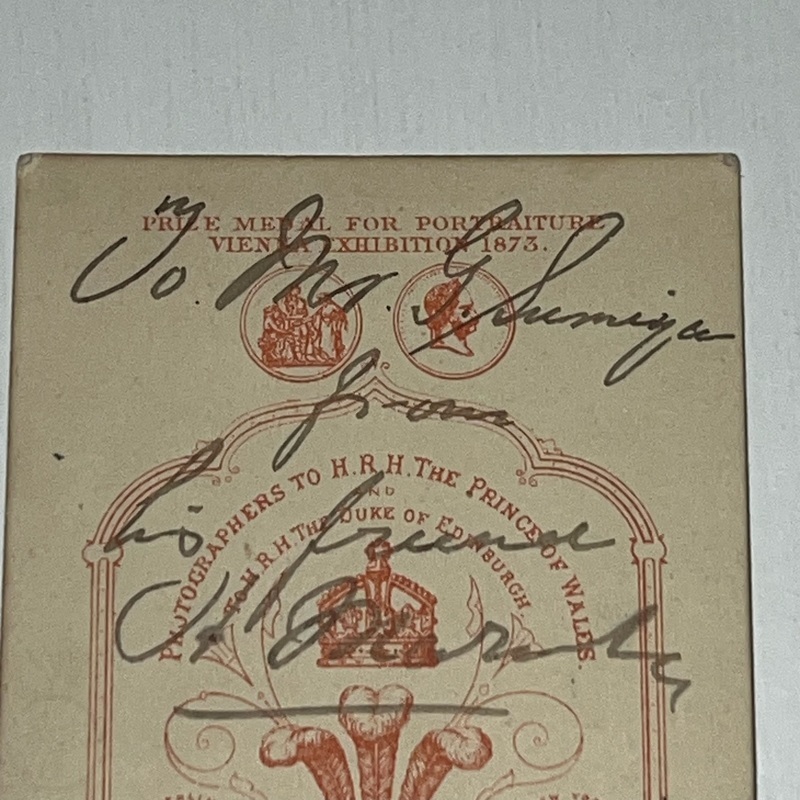 PRIZE MEDAL FOR PORTRAITURE
VIENNA EXHIBITION 1873.
To. Mr. G. Sumiya
from
his friend
PHOTOGRAPHERS TO H.R.H. THE PRINCE OF WALES.
AND
TO H.R.H THE DUKE OF EDINBURGH